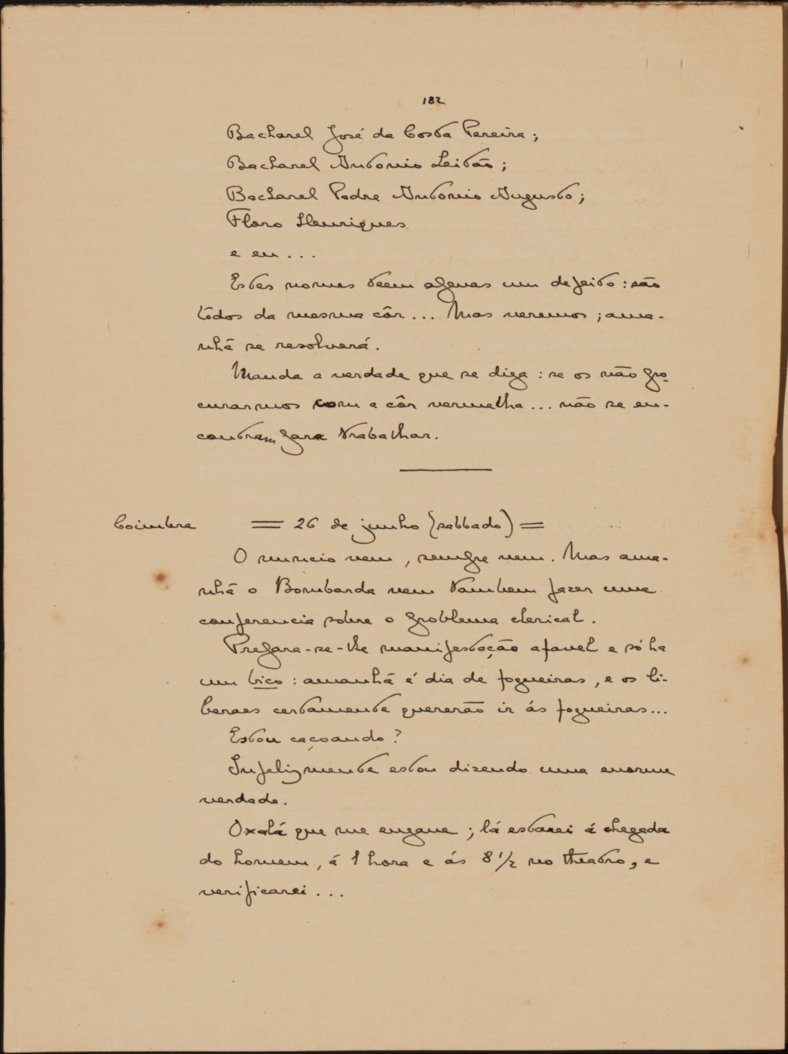 182
Bacharel José da Costa Pereira;
Bacharel Antonio Leitão;
Bacharel Padre Antonio Augusto;
Floro Henriques
e eu...
Estes nomes teem apenas um defeito: são
tôdos da mesma côr... Mas veremos; ama-
nhã se resolverá.
Manda a verdade que se diga: se os não pro-
curarmos com a côr vermelha... não se en-
contram para trabalhar.
Coimbra = 26 de junho (sabbado) =
O nuncio vem, sempre vem. Mas ama-
nhã o Bombarda vem tambem fazer uma
conferencia sobre o problema clerical.
Prepara-se-lhe manifestação afavel e só ha
um trico: amanhã é dia de fogueiras, e os li-
beraes certamente quererão ir ás fogueiras...
Estou caçoando?
Infelizmente estou dizendo uma enorme
verdade.
Oxalá que me engane; lá estarei á chegada
do homem, á 1 hora e ás 8 1/2 no theatro, e
verificarei...